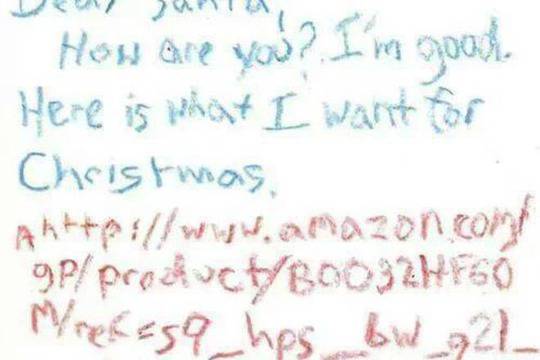 Dear Santa,
How are you? I'm good.
Here is what I want for
Christmas.
A http://www.amazon.com/
gp/product/B0032HF60
M/ref=s9_hps_bw_g21_